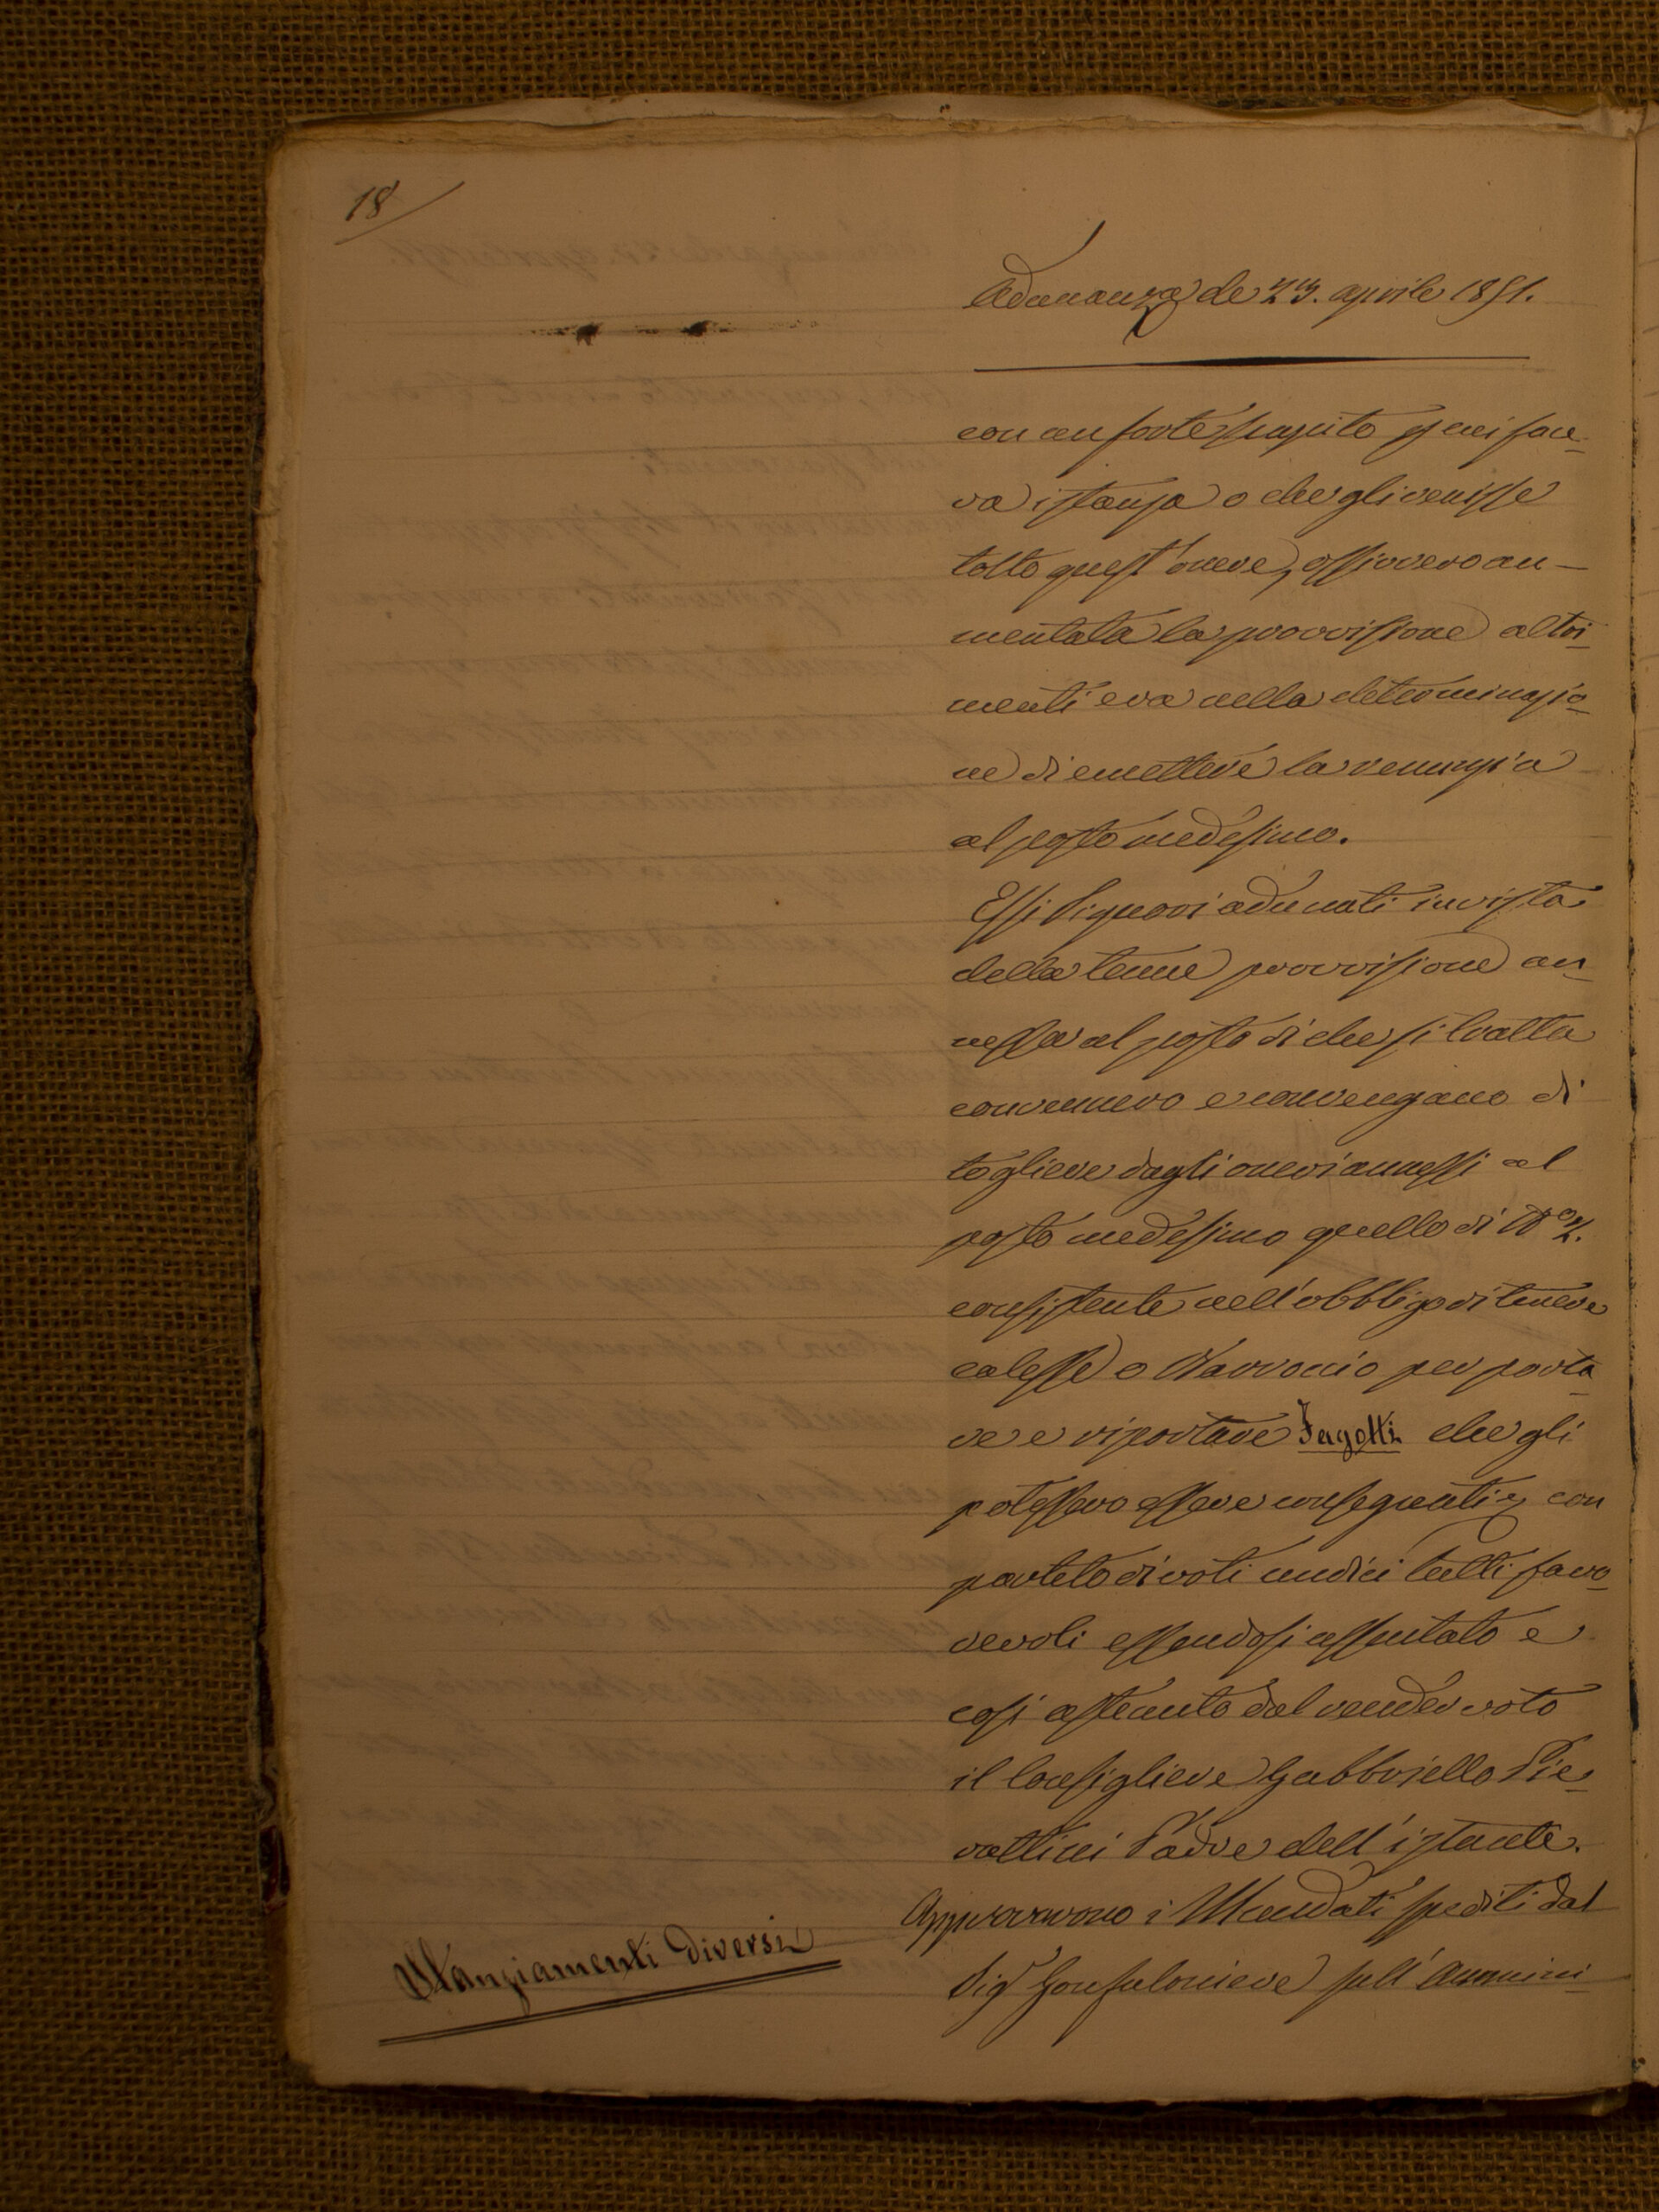 18
Adunanza de 23. aprile 1851.
con un forte scapito per cui face-
va istanza o che gli venisse
tolto quest'onere, ossivvero au-
mentata la provvisione altri
menti era nella determinazio-
ne di emettere la renunzia
al posto medesimo.
Essi Signori adunati in vista
della tenue provvisione an-
nessa al posto di che si tratta
convennero e convengano di
togliere dagli oneri annessi al
posto medesimo quello di N.o 2.
consistente nell'obbligo di tenere
calesse o Barroccio per porta-
re e riportare Fagotti che gli
potessero essere consegnati, con
partito di voti undici tutti favo-
revoli essendosi assentato e
così astenuto dal render voto
il Consigliere Gabbriello Pie-
rattini Padre dell'istante.
Stanziamenti diversi
Approvarono i Mandati spediti dal
Sig.r Gonfaloniere sull'Ammini-